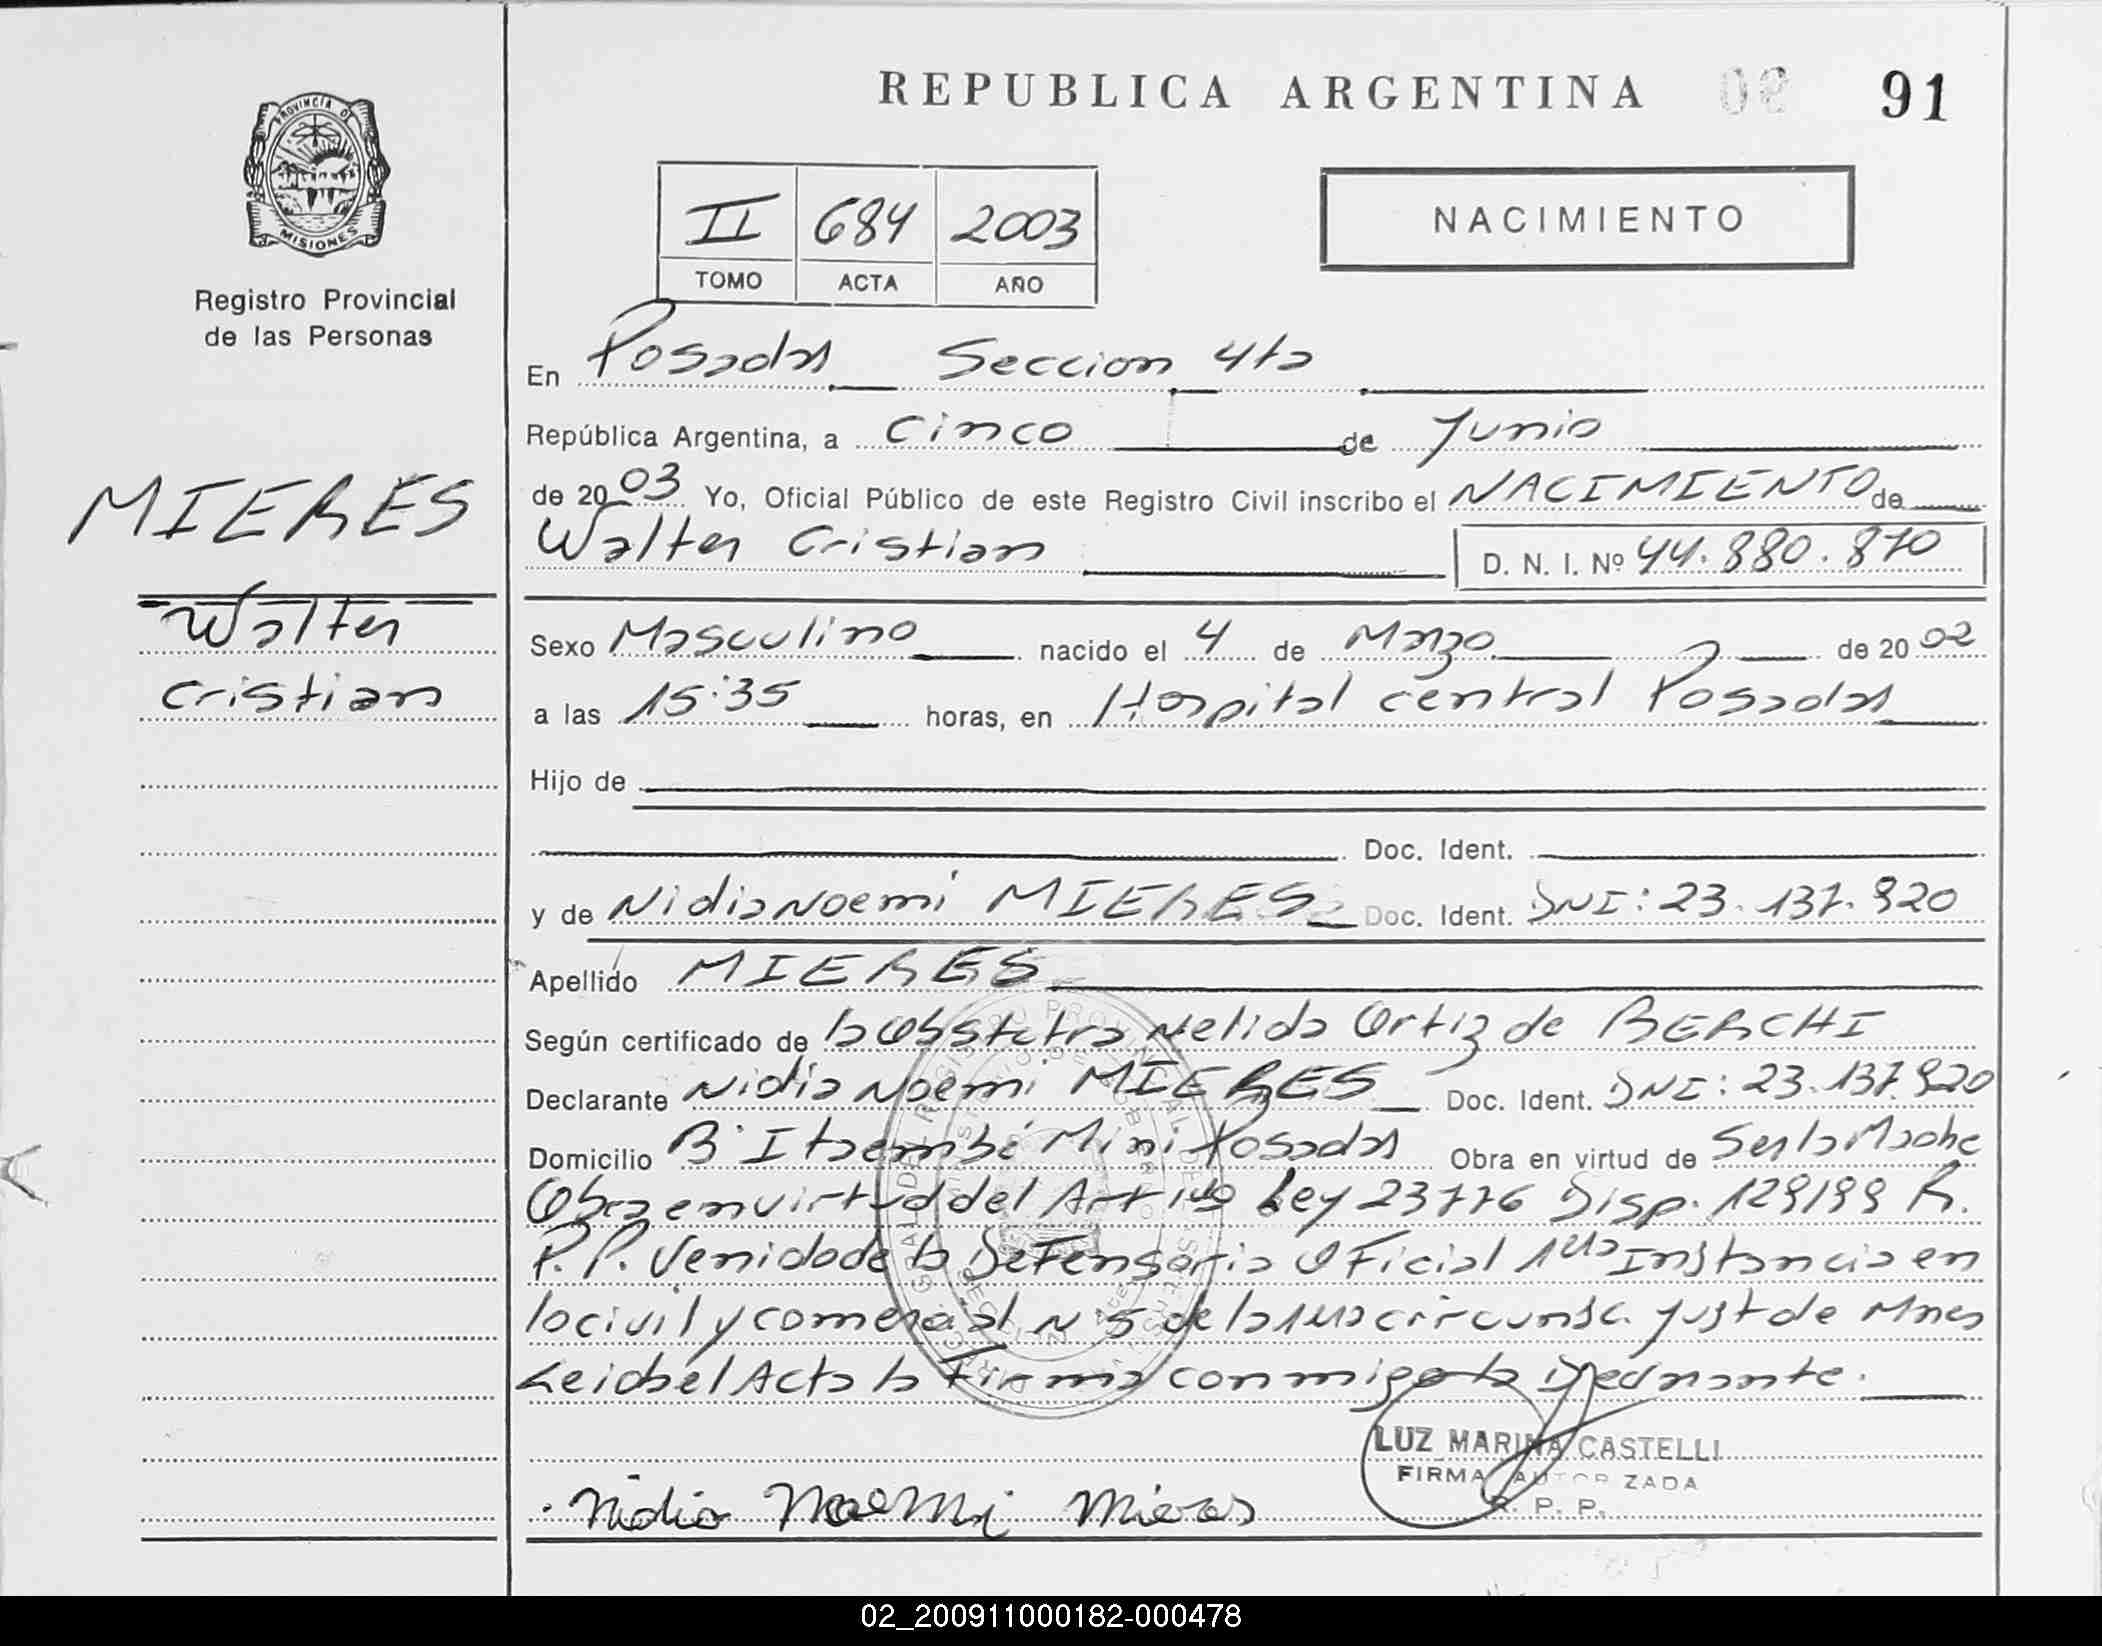 REPUBLICA ARGENTINA 91
PROVINCIA DE
MISIONES
Registro Provincial
de las Personas
II 684 2003
TOMO ACTA AÑO
NACIMIENTO
En Posadas Seccion 4ta
República Argentina, a Cinco de Junio
de 2003 Yo, Oficial Público de este Registro Civil inscribo el NACIMIENTO de
Walter Cristian D. N. I. Nº 44.880.870
MIERES
Walter
Cristian
Sexo Masculino nacido el 4 de Marzo de 2002
a las 15:35 horas, en Hospital central Posadas
Hijo de
Doc. Ident.
y de Nidia Noemi MIERES Doc. Ident. DNI: 23.137.920
Apellido MIERES
Según certificado de la Obstetra Nelida Ortiz de BERCHI
Declarante Nidia Noemi MIERES Doc. Ident. DNI: 23.137.920
Domicilio Bº Itaembé Mini Posadas Obra en virtud de Ser la Madre
Obra en virtud del Art Ley 23776 Disp. 129199 R.
P.P. Venida de la Defensoria Oficial 1era Instancia en
lo civil y comercial N 5 de la 1era circunsc. Just de Mnes
Leida el Acta la Firma conmigo la Declarante.
LUZ MARINA CASTELLI
FIRMA AUTORIZADA
R. P. P.
Nidia Noemi Mieres
02_200911000182-000478